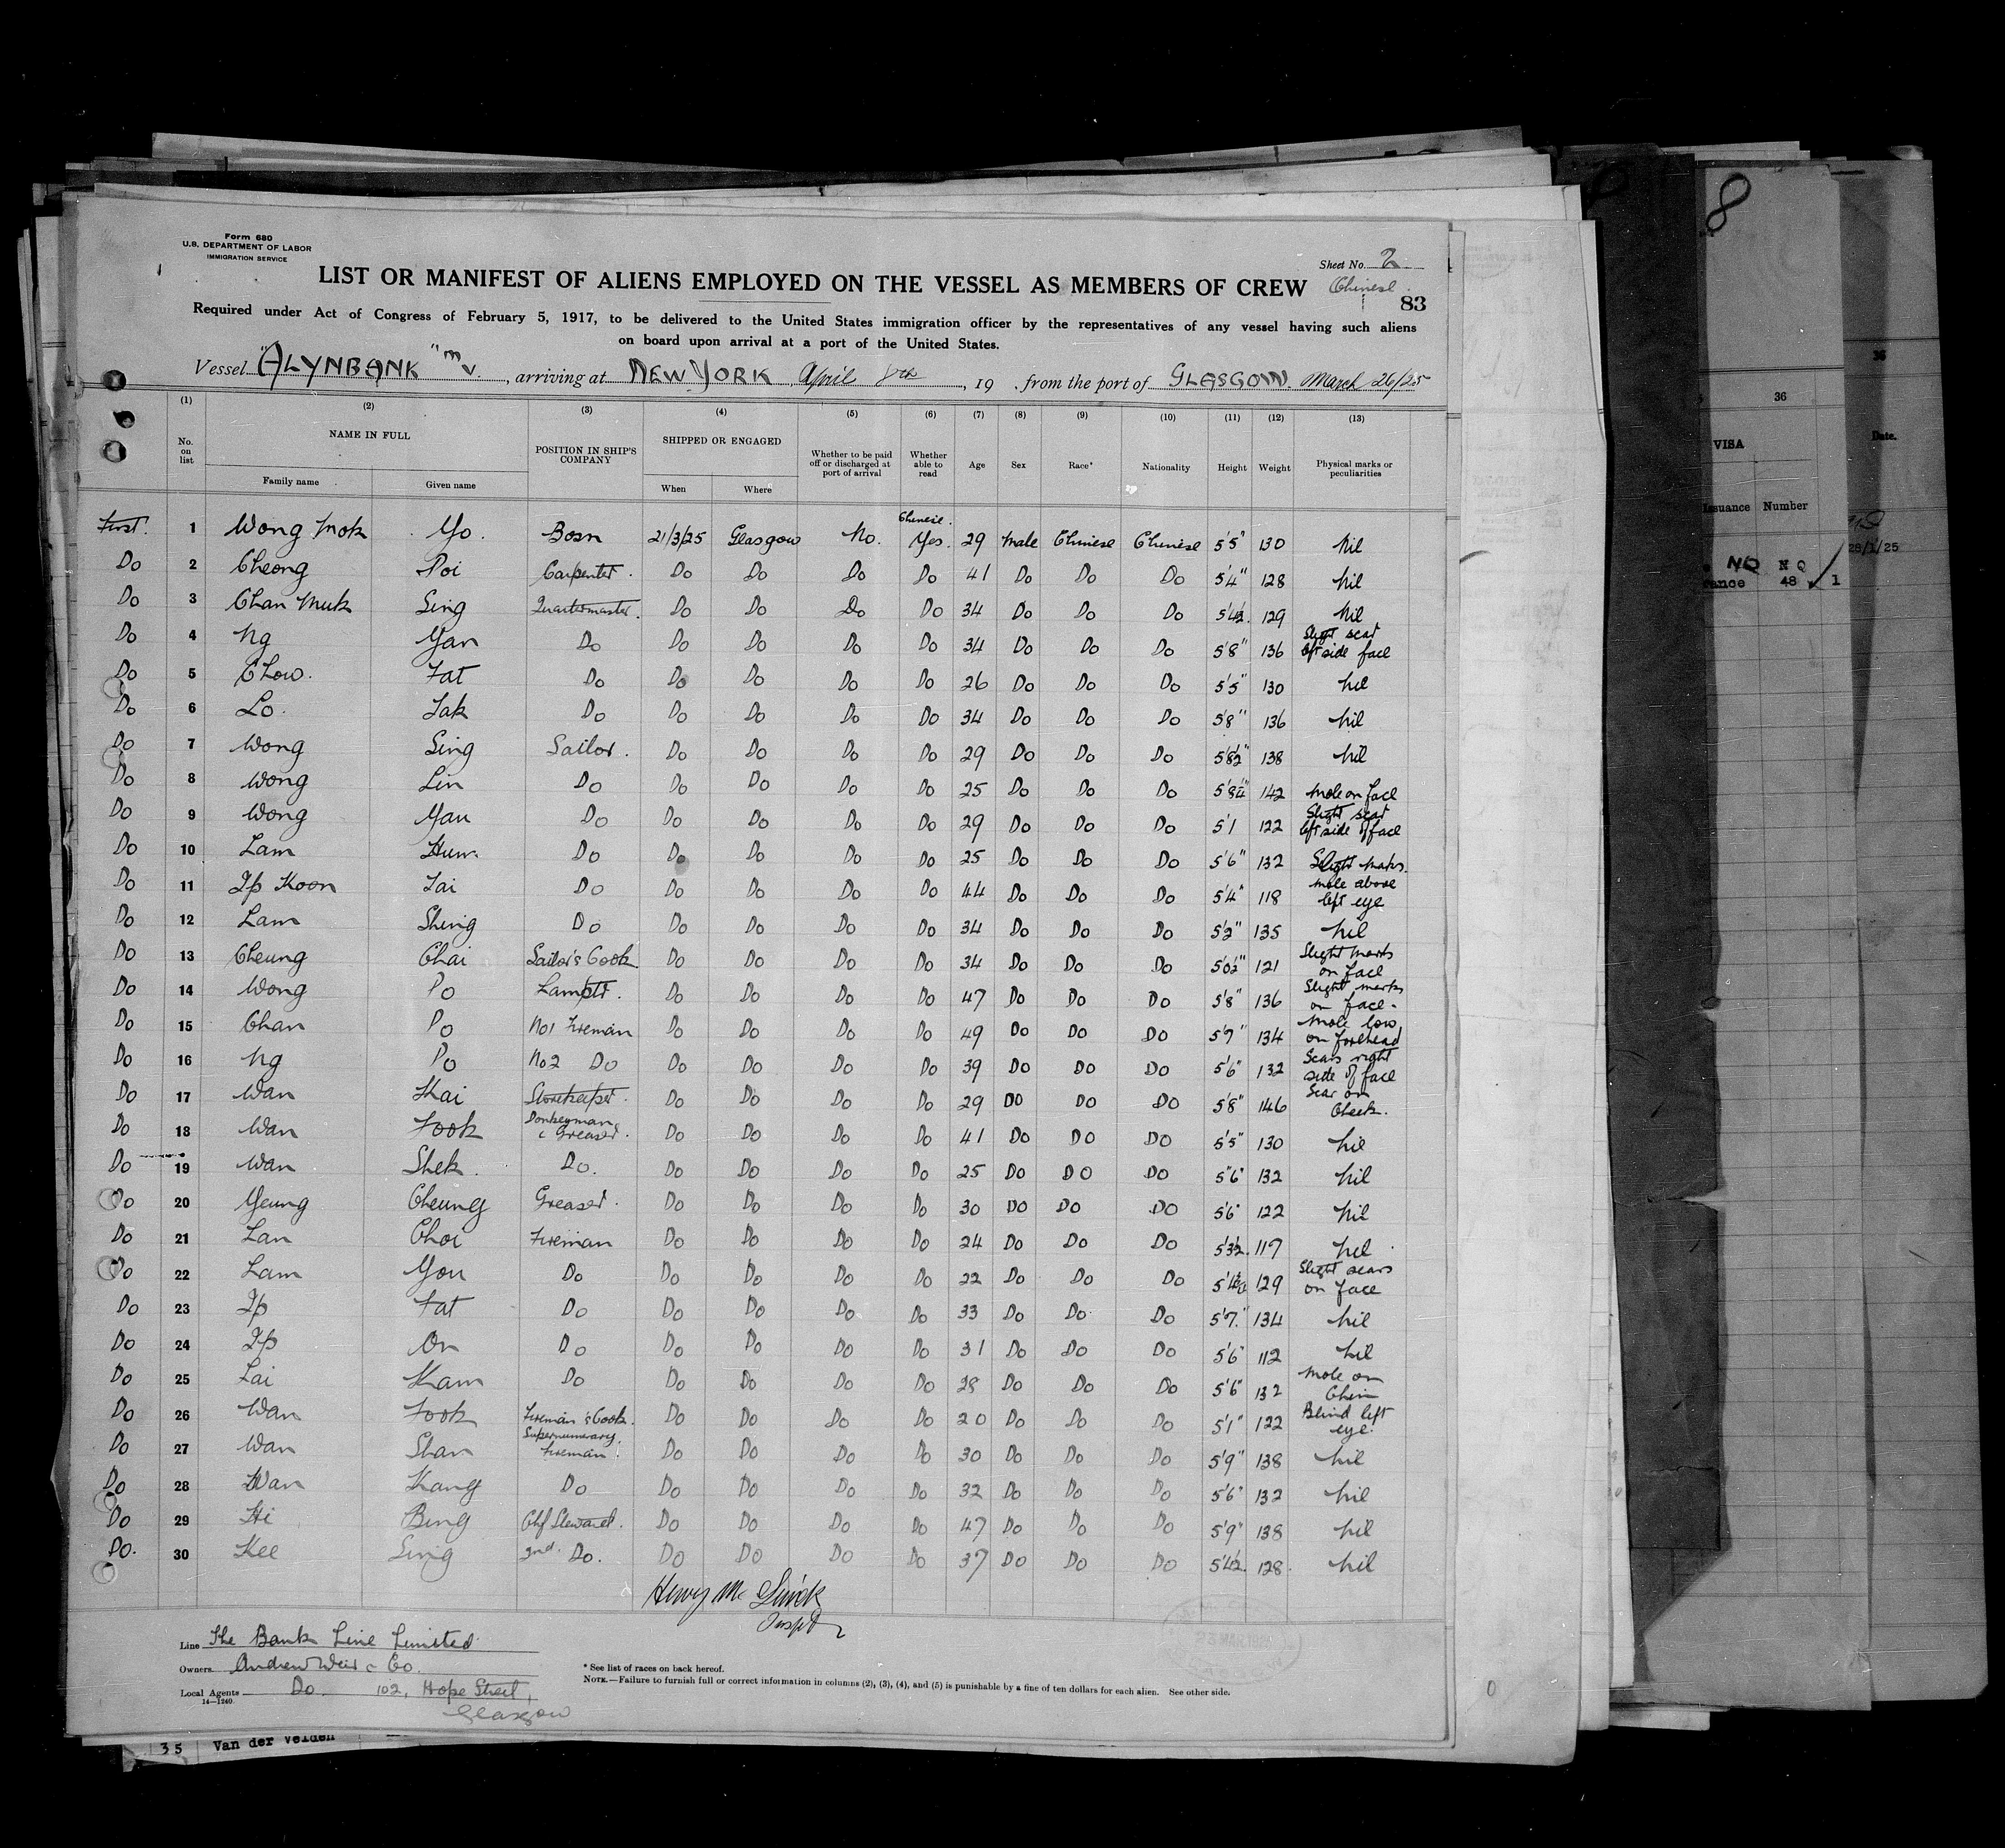 Form 680
U.S. DEPARTMENT OF LABOR
IMMIGRATION SERVICE
Sheet No. 2
Chinese
83
LIST OR MANIFEST OF ALIENS EMPLOYED ON THE VESSEL AS MEMBERS OF CREW
Required under Act of Congress of February 5, 1917, to be delivered to the United States immigration officer by the representatives of any vessel having such aliens
on board upon arrival at a port of the United States.
Vessel "ALYNBANK" M V., arriving at NEW YORK April 8th, 19 . from the port of GLASGOW. March 26/25
(1) (2) (3) (4) (5) (6) (7) (8) (9) (10) (11) (12) (13)
No. on list NAME IN FULL Family name Given name POSITION IN SHIP'S COMPANY SHIPPED OR ENGAGED When Where Whether to be paid off or discharged at port of arrival Whether able to read Age Sex Race* Nationality Height Weight Physical marks or peculiarities
First. 1 Wong Mok Yo. Bosn 21/3/25 Glasgow No. Chinese. Yes. 29 Male Chinese Chinese 5'5" 130 Nil
Do 2 Cheong Poi Carpenter. Do Do Do Do 41 Do Do Do 5'4" 128 Nil
Do 3 Chan Muk Sing Quartermaster. Do Do Do Do 34 Do Do Do 5'4½. 129 Nil
Do 4 Ng Yan Do Do Do Do Do 34 Do Do Do 5'8" 136 Slight scar left side face
Do 5 Chow. Fat Do Do Do Do Do 26 Do Do Do 5'5" 130 Nil
Do 6 Lo. Tak Do Do Do Do Do 34 Do Do Do 5'8" 136 Nil
Do 7 Wong Sing Sailor. Do Do Do Do 29 Do Do Do 5'8½" 138 Nil
Do 8 Wong Lin Do Do Do Do Do 25 Do Do Do 5'8¼" 142 Mole on face
Do 9 Wong Yau Do Do Do Do Do 29 Do Do Do 5'1 122 Slight scar left side of face
Do 10 Lam Hum. Do Do Do Do Do 25 Do Do Do 5'6" 132 Slight marks.
Do 11 Ip Koon Tai Do Do Do Do Do 44 Do Do Do 5'4" 118 Mole above left eye
Do 12 Lam Shing Do Do Do Do Do 34 Do Do Do 5'2" 135 Nil
Do 13 Cheung Chai Sailor's Cook. Do Do Do Do 34 Do Do Do 5'0½" 121 Slight marks on face
Do 14 Wong Po Lamptr. Do Do Do Do 47 Do Do Do 5'8" 136 Slight marks on face.
Do 15 Chan Po No1 Fireman Do Do Do Do 49 Do Do Do 5'7" 134 Mole low on forehead
Do 16 Ng Po No2 Do Do Do Do Do 39 Do Do Do 5'6" 132 Scars right side of face
Do 17 Wan Kai Storekeeper. Do Do Do Do 29 Do Do Do 5'8" 146 Scar on Cheek.
Do 18 Wan Fook Donkeyman & Greaser. Do Do Do Do 41 Do Do Do 5'5" 130 Nil
Do 19 Wan Shek. Do. Do Do Do Do 25 Do Do Do 5'6" 132 Nil
Do 20 Yeung Cheung Greaser. Do Do Do Do 30 Do Do Do 5'6" 122 Nil
Do 21 Lan Choi Fireman Do Do Do Do 24 Do Do Do 5'3½. 117 Nil
Do 22 Lam You Do Do Do Do Do 22 Do Do Do 129 Slight scars on face
Do 23 Ip Fat Do Do Do Do Do 33 Do Do Do 5'7." 134 Nil
Do 24 Ip On Do Do Do Do Do 31 Do Do Do 5'6" 112 Nil
Do 25 Lai Kam Do Do Do Do Do 28 Do Do Do 5'6" 132 Mole on Chin
Do 26 Wan Fook Fireman's Cook. Do Do Do Do 20 Do Do Do 5'1" 122 Blind left eye.
Do 27 Wan Shan Supernumerary. Fireman. Do Do Do Do 30 Do Do Do 5'9" 138 Nil
Do 28 Wan Kang Do Do Do Do Do 32 Do Do Do 5'6" 132 Nil
Do 29 Hi Bing Chf Steward. Do Do Do Do 47 Do Do Do 5'9" 138 Nil
Do. 30 Kee Sing 2nd. Do. Do Do Do Do 37 Do Do Do 5'4½. 128. Nil
Line The Bank Line Limited
Owners Andrew Weir & Co.
Local Agents Do 102, Hope Street,
Glasgow
14—1240
* See list of races on back hereof.
NOTE.—Failure to furnish full or correct information in columns (2), (3), (4), and (5) is punishable by a fine of ten dollars for each alien. See other side.
35 Van der Velden
8
36
36
VISA
Date.
Issuance Number
28/1/25
NQ N Q
48 1